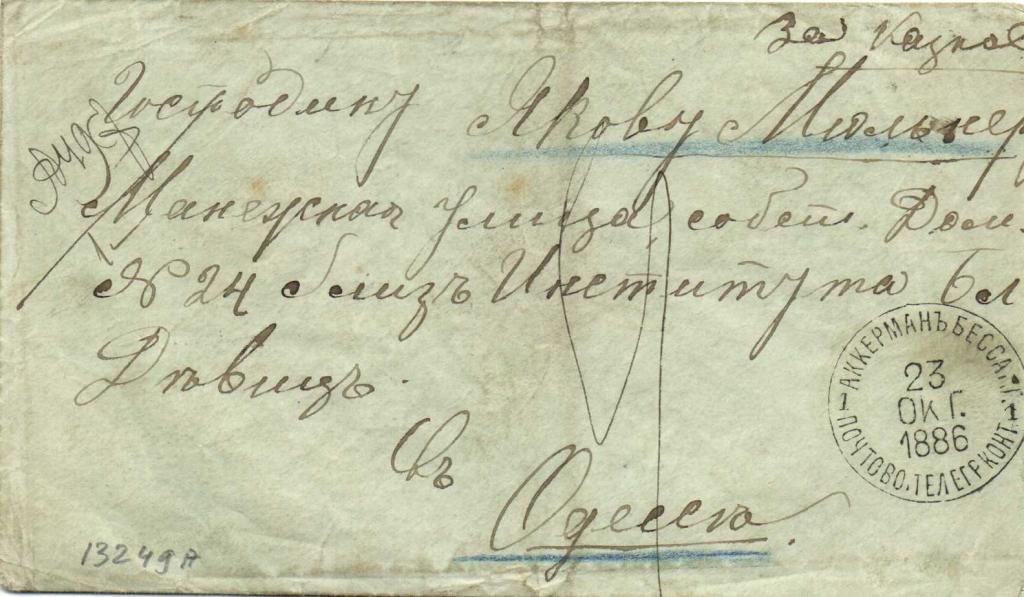 За Казнов
Господину Якову Мюльнер
Манежная улица, собст. Дом.
№ 24 близъ Института Бл
Дѣвицъ.
Въ
Одессѣ.
АККЕРМАНЪ БЕССАР. Г.
23
ОКТ.
1886
1 ПОЧТОВО-ТЕЛЕГР. КОНТ. 1
13249А